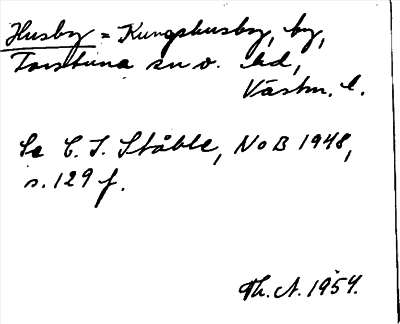 Husby = Kungshusby, by,
Torstuna sn o. hd,
Västm. l.
Se C. I. Ståhle, NoB 1948,
s. 129 f.
Th. A. 1954.